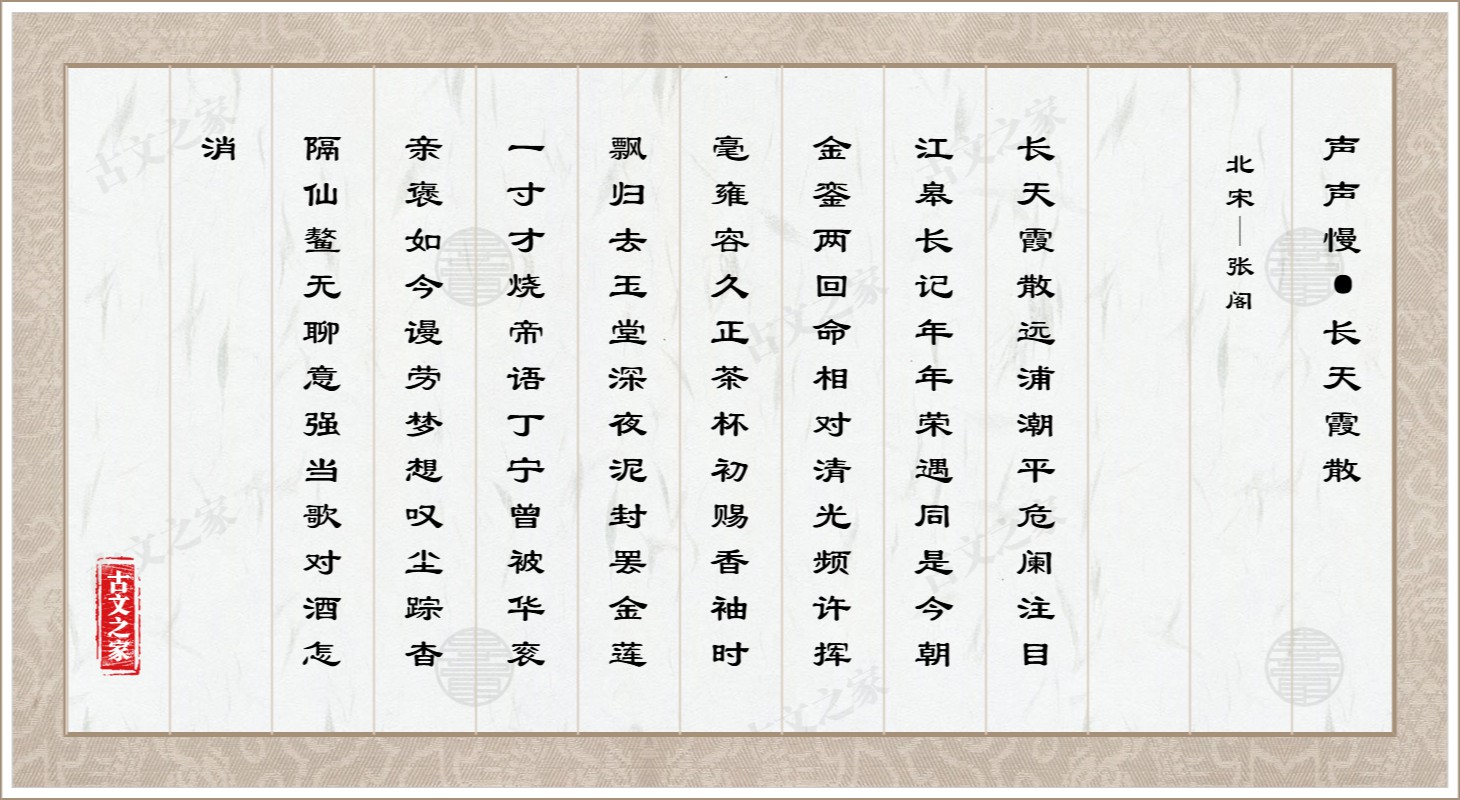 声声慢●长天霞散
北宋—张阁
长天霞散远浦潮平危阑注目
江皋长记年年荣遇同是今朝
金銮两回命相对清光频许挥
毫雍容久正茶杯初赐香袖时
飘归去玉堂深夜泥封罢金莲
一寸才烧帝语丁宁曾被华衮
亲褒如今谩劳梦想叹尘踪杳
隔仙鳌无聊意强当歌对酒怎
消
古文之家
古文之家
古文之家
古文之家
古文之家
古文之家
古文之家